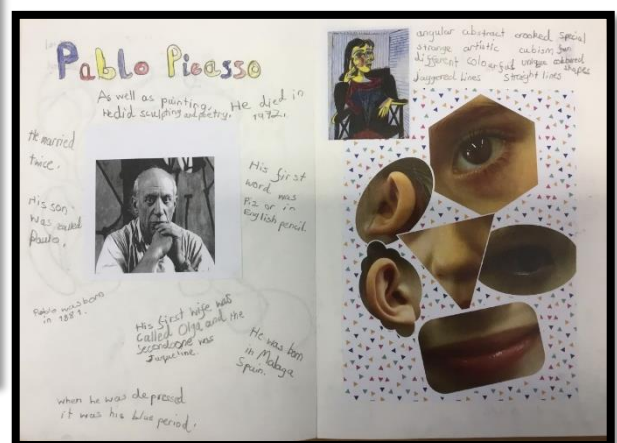 Pablo Picasso
As well as painting,
He did sculpting and poetry.
He died in
1972.
He married
twice.
His son
was called
Paulo.
His first
word was
Piz or in
English pencil
Pablo was born
in 1881.
His first wife was
Called Olga and the
Second one was
Jaqueline.
He was born
in Malaga
Spain.
when he was depressed
it was his blue period.
angular abstract crooked special
strange artistic cubism fun
different colourful unique coloured
shapes
jaggered lines straight lines